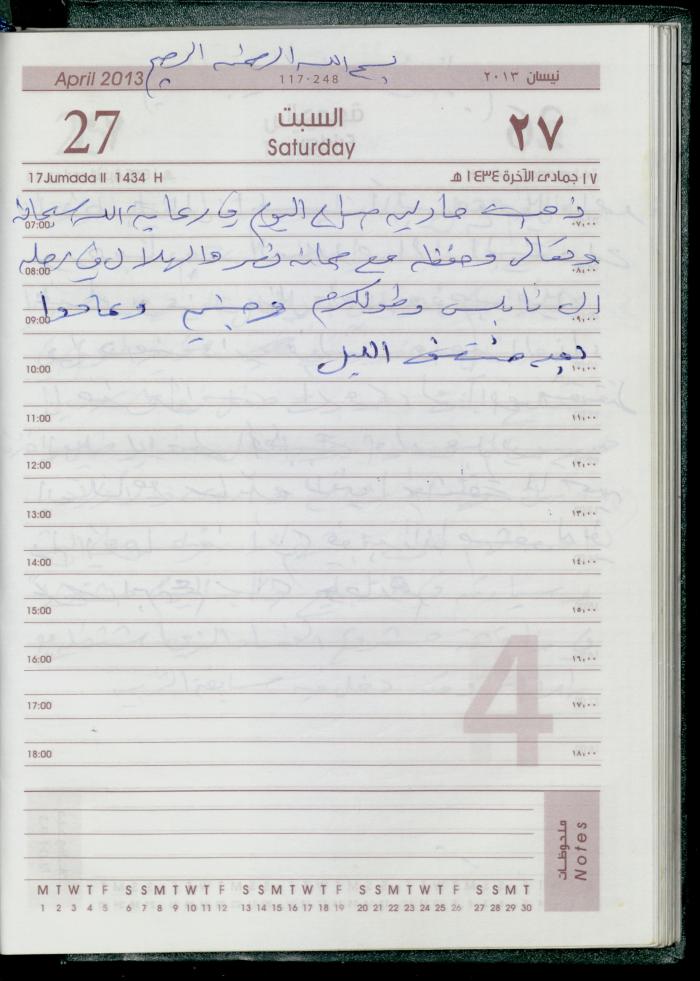 بسم الله الرحمن الرحيم
April 2013 117-248 نيسان ٢٠١٣
27 السبت ٢٧
Saturday
17 Jumada II 1434 H ١٧ جمادى الآخرة ١٤٣٤ هـ
ذهبت مارلين صباح اليوم في رعاية الله سبحانه
07:00 ٠٧،٠٠
وتعالى وحفظه مع والهلال في رحله
08:00 ٠٨،٠٠
الى نابلس وطولكرم وجنين وعادوا
09:00 ٠٩،٠٠
بعد الليل
10:00 ١٠،٠٠
11:00 ١١،٠٠
12:00 ١٢،٠٠
13:00 ١٣،٠٠
14:00 ١٤،٠٠
15:00 ١٥،٠٠
16:00 ١٦،٠٠
17:00 ١٧،٠٠
18:00 ١٨،٠٠
4
ملحوظات
Notes
M T W T F S S M T W T F S S M T W T F S S M T W T F S S M T
1 2 3 4 5 6 7 8 9 10 11 12 13 14 15 16 17 18 19 20 21 22 23 24 25 26 27 28 29 30